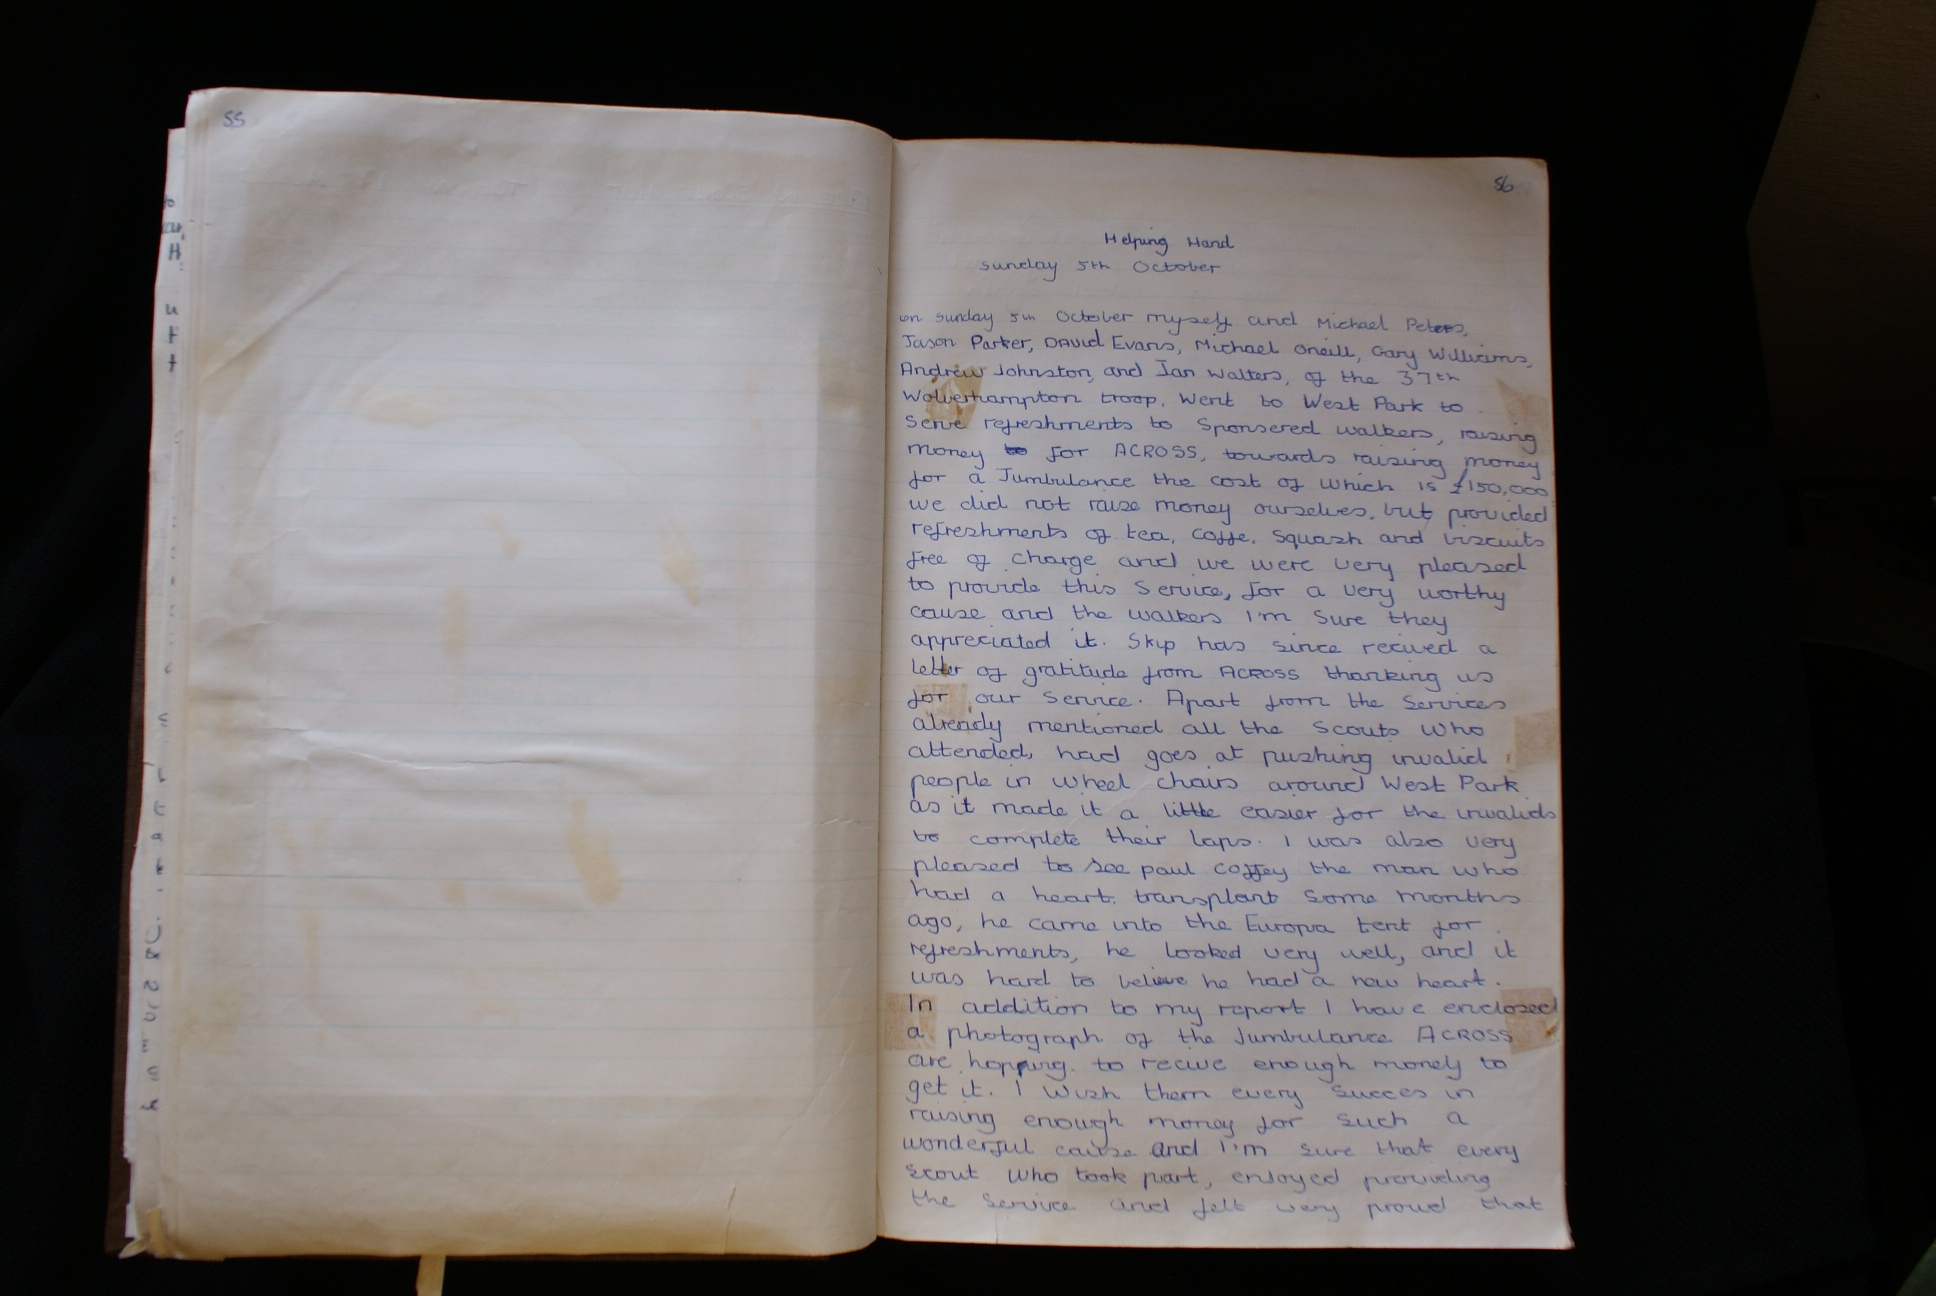 55
56
Helping Hand
Sunday 5th October
on Sunday 5th October myself and Michael Peters,
Jason Parker, DAVID Evans, Michael Oneill, Gary Williams,
Andrew Johnston, and Ian Walters, of the 37th
Wolverhampton troop, went to West Park to
Serve refreshments to Sponsered walkers, raising
money to for ACROSS, towards raising money
for a Jumbulance the cost of which is £150,000
we did not raise money ourselves, but provided
refreshments of tea, coffe, squash and biscuits
free of charge and we were very pleased
to provide this Service, for a very worthy
cause and the walkers I'm Sure they
appreciated it. Skip has since recived a
letter of gratitude from ACROSS thanking us
for our Service. Apart from the Services
already mentioned all the Scouts who
attended, had goes at pushing invalid
people in wheel chairs around West Park
as it made it a little easier for the invalids
to complete their laps. I was also very
pleased to see paul coffey the man who
had a heart transplant some months
ago, he came into the Europa tent for
refreshments, he looked very well, and it
was hard to believe he had a new heart.
In addition to my report I have enclosed
a photograph of the Jumbulance ACROSS
are hopping to recive enough money to
get it. I wish them every succes in
raising enough money for such a
wonderful cause and I'm sure that every
scout who took part, enjoyed providing
the Service and felt very proud that